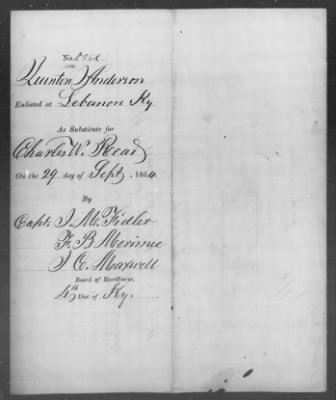 No.
Quinton Anderson
Enlisted at Lebanon Ky
As Substitute for
Charles W. Read
On the 29 day of Sept. 1864.
By
Capt. J. M. Fidler
F. B Merimee
J C. Maxwell
Board of Enrollment.
4th Dist. of Ky.